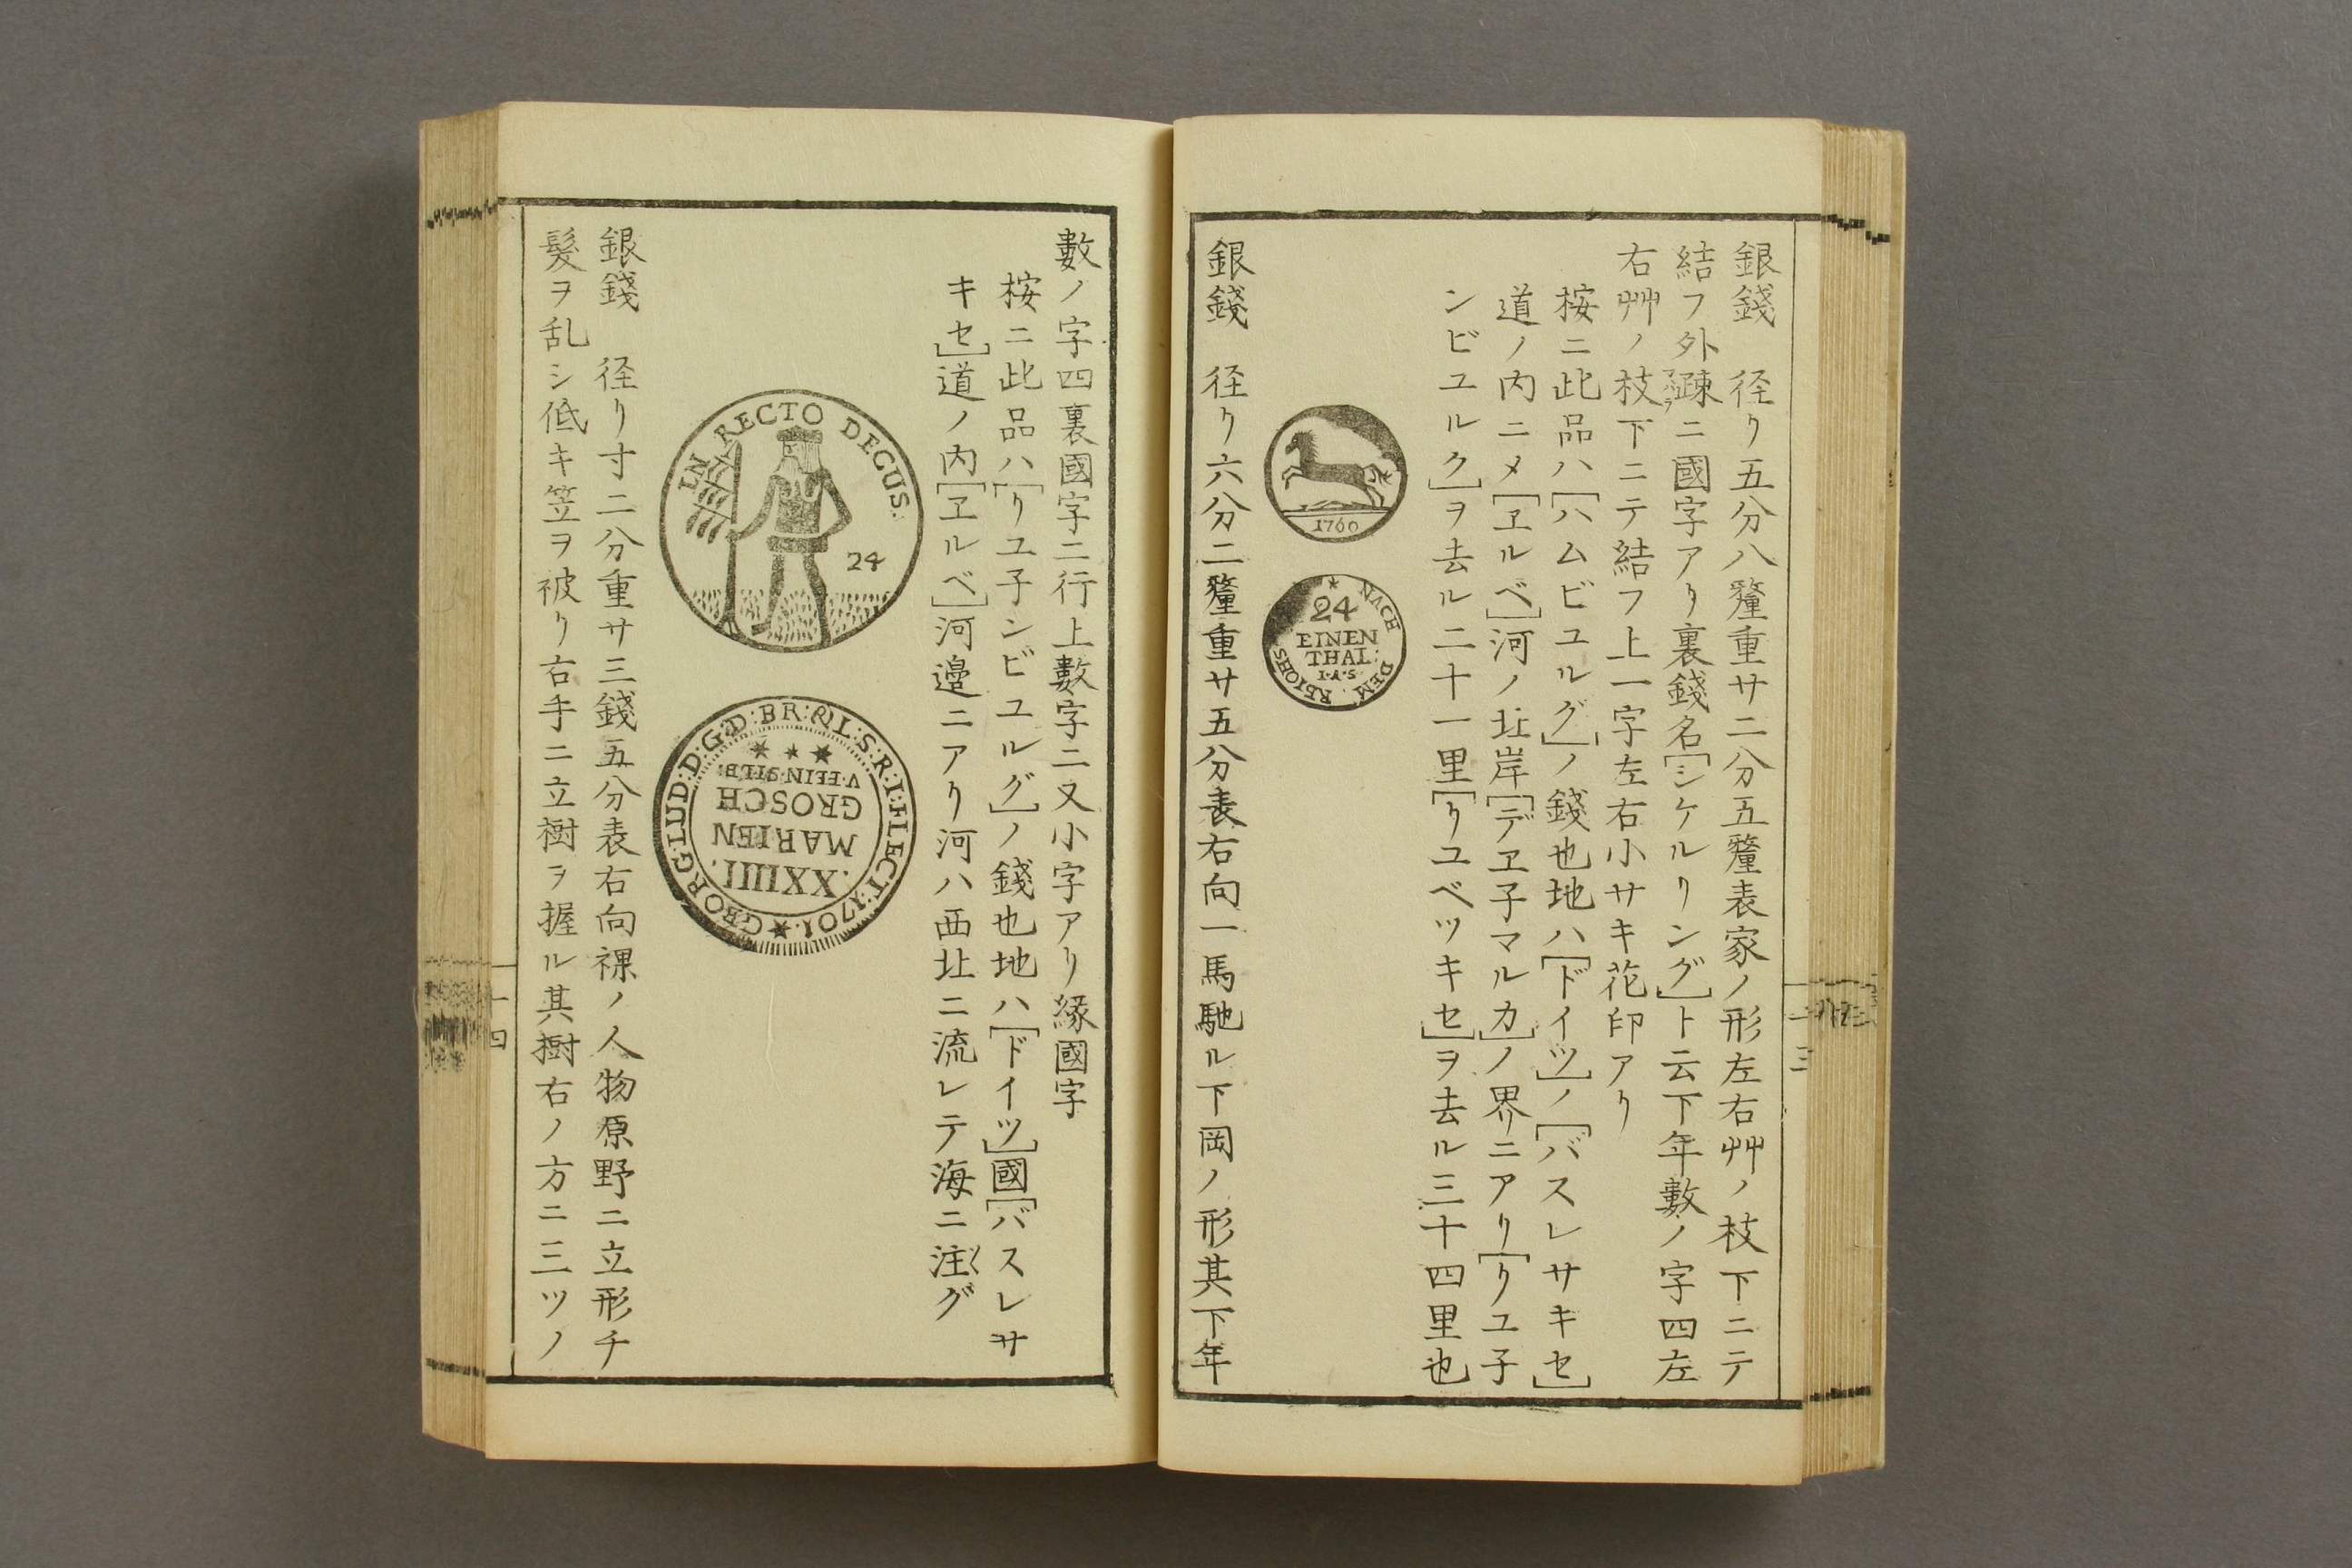 銀錢 径リ五分八釐重サ二分五釐表家ノ形左右艸ノ枝下ニテ
結フ外疎ニ國字アリ裏錢名[シケルリング]ト云下年數ノ字四左
右艸ノ枝下ニテ結フ上一字左右小サキ花印アリ
桉ニ此品ハ[ハムビユルグ]ノ錢也地ハ[ドイツ]ノ[バスレサキセ]
道ノ内ニメ[ヱルベ]河ノ北岸[デヱ子マルカ]ノ界ニアリ[リユ子
ンビユルク]ヲ去ル二十一里[リユベツキセ]ヲ去ル三十四里也
1760
★ NACH DEM REICHS
24
EINEN
THAL:
I·A·S·
銀錢 径リ六分二釐重サ五分表右向一馬馳ル下岡ノ形其下年
十三
數ノ字四裏國字二行上數字二又小字アリ縁國字
桉ニ此品ハ[リユ子ンビユルグ]ノ錢也地ハ[ドイツ]國[バスレサ
キセ]道ノ内[ヱルベ]河邉ニアリ河ハ西北ニ流レテ海ニ注グ
IN RECTO DECUS.
24
★GEORG:LUD:D:G:D:BR:&L:S:R:I:ELECT:1701.
XXIIII.
MARIEN
GROSCH
V·FEIN·SILB:
銀錢 径リ寸二分重サ三錢五分表右向裸ノ人物原野ニ立形チ
髮ヲ乱シ低キ笠ヲ被リ右手ニ立樹ヲ握ル其樹右ノ方ニ三ツノ
十四